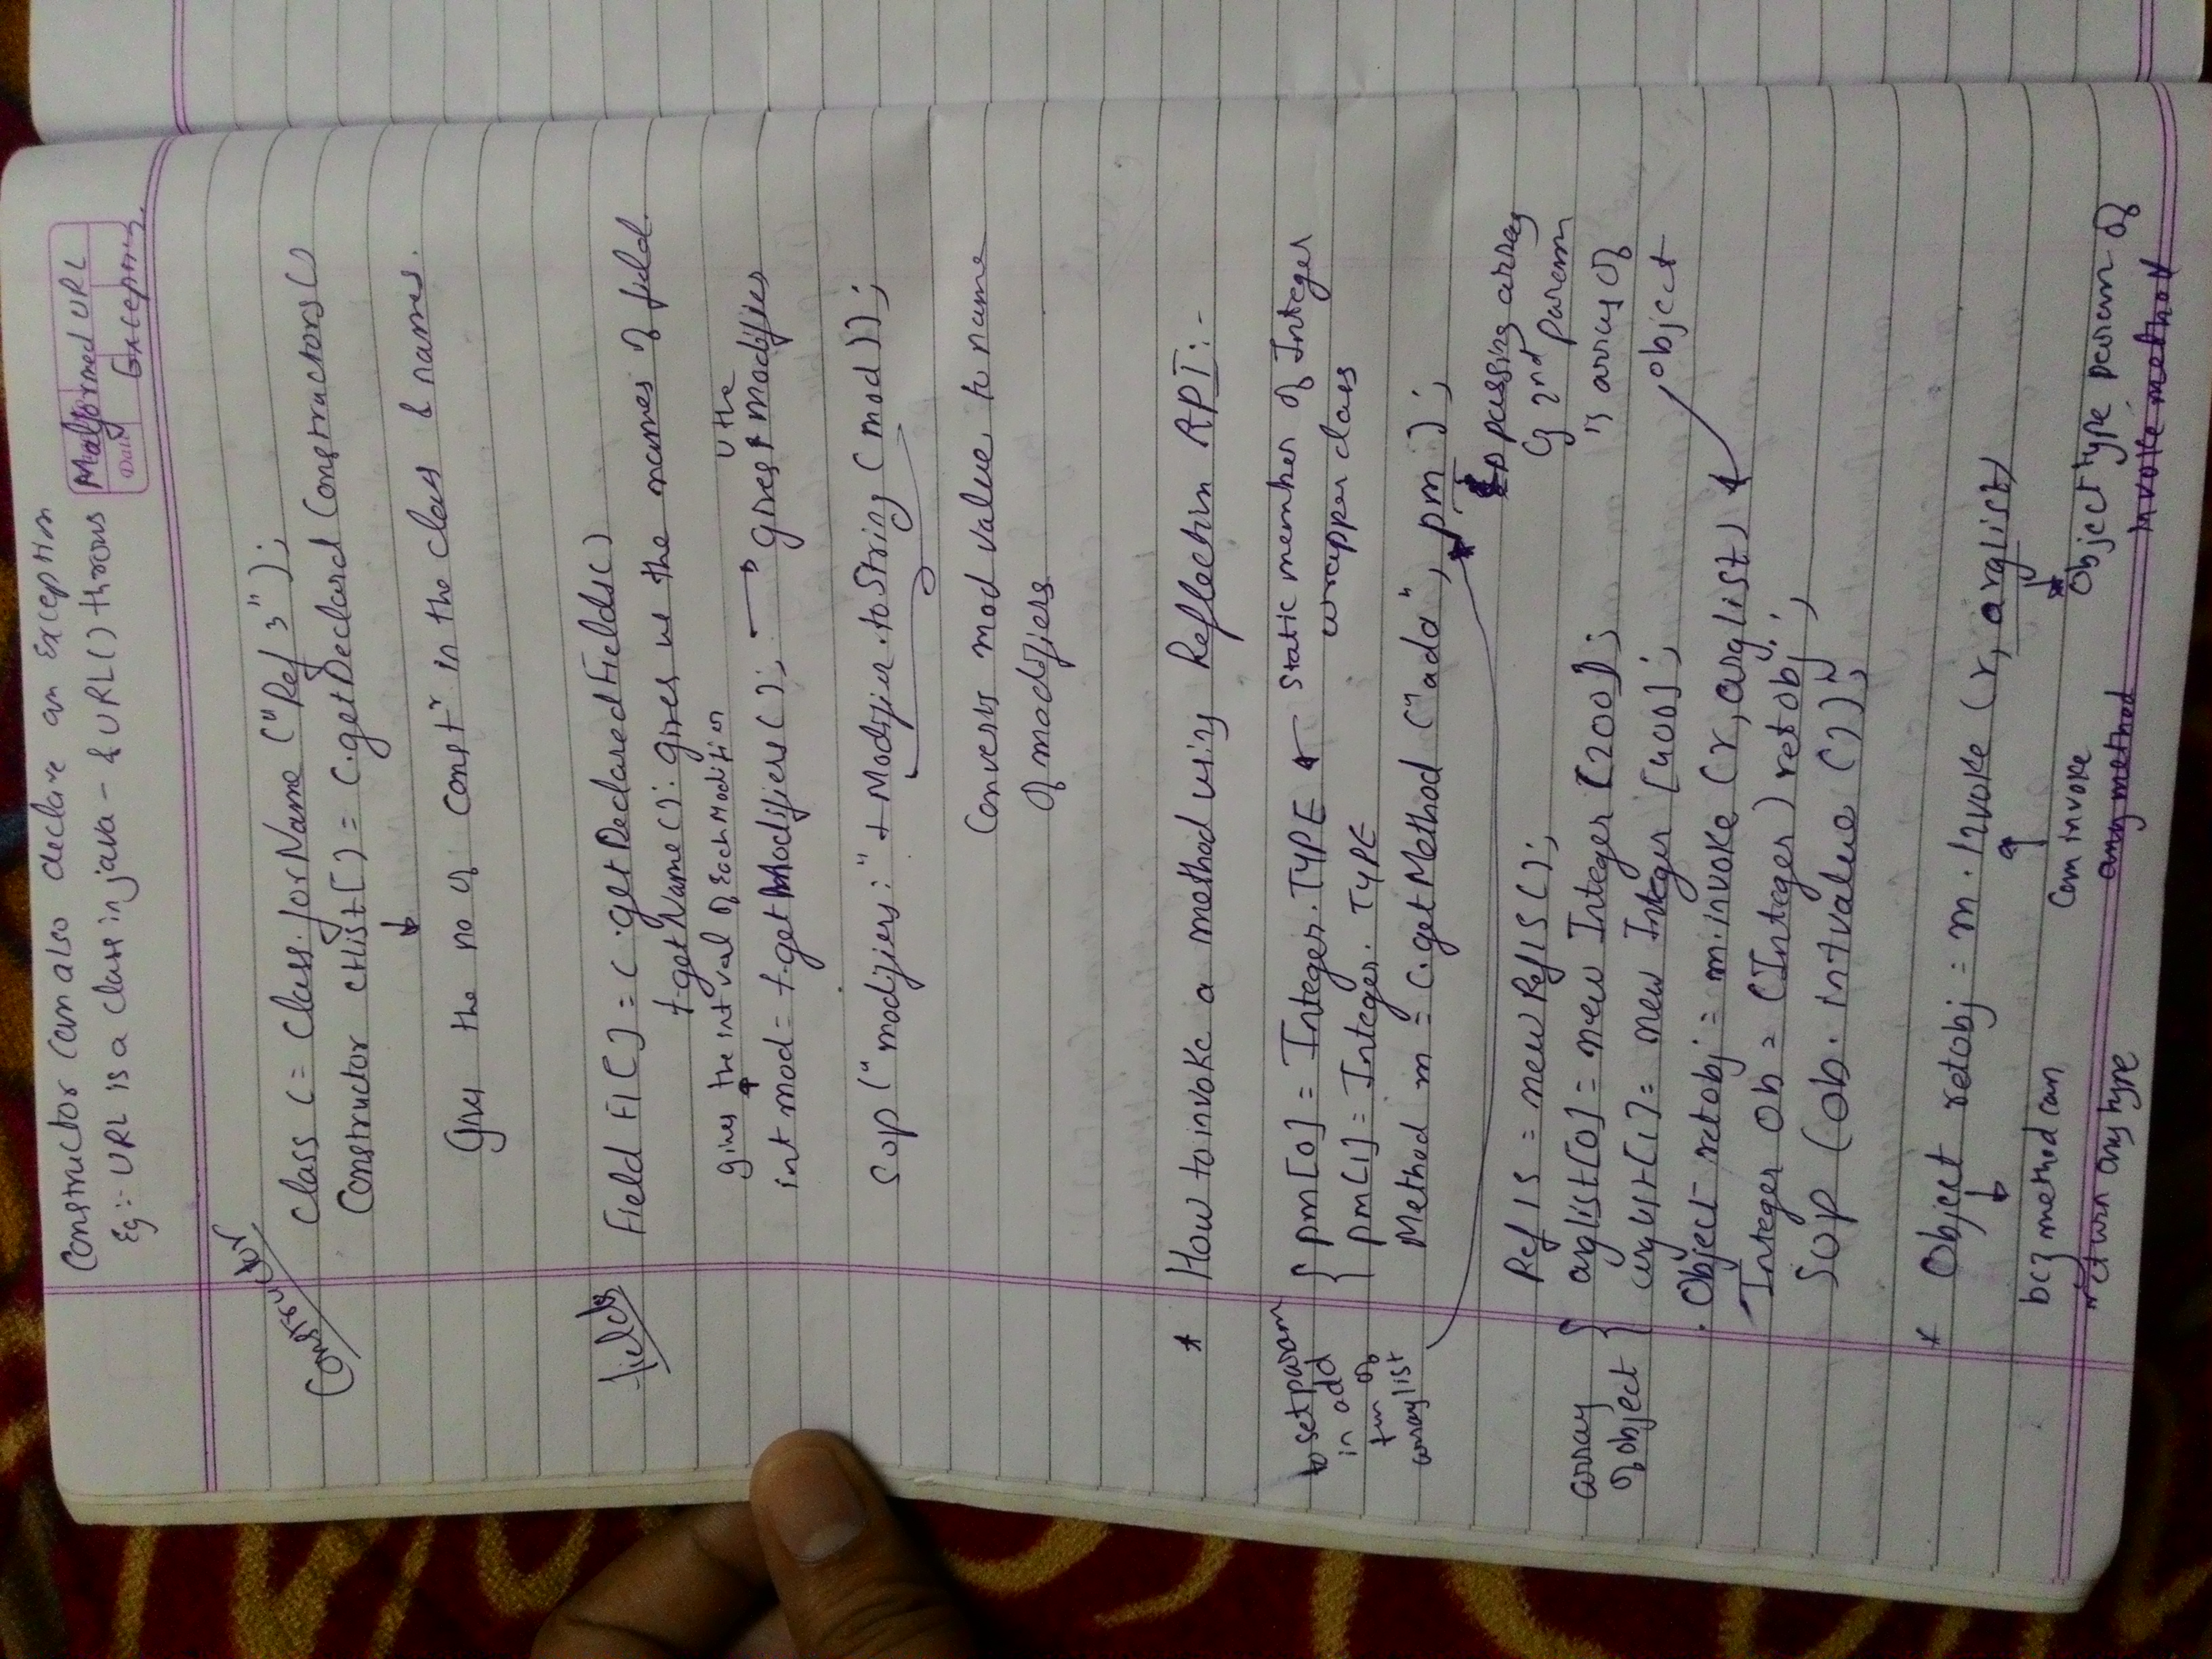 Constructor can also declare an Exception
Eg:- URL is a class in java - & URL() throws Malformed URL
Date
Exception.
Constructor
Class C = Class.forName ("Ref 3");
Constructor ctlist[] = C.getDeclard Constructors()
Gives the no of Constr in the class & names.
fields
Field Fl[] = C.getDeclaredFields()
f.getName(): gives us the names of field.
gives the int val of Each Modifier
int mod = f.getModifiers(); → gives the modifier
Sop ("modifiers:" + Modifier.toString (mod));
Converts mod value to name
of modifiers
* How to invoke a method using Reflection API:-
to set param
in add
fun of
arraylist
pm[0] = Integer.TYPE ← Static member of Integer
wrapper class
pm[1] = Integer. TYPE
Method m = C.getMethod ("add", pm);
passing array
2nd param
is array of
object
Ref 1S = new Ref1S();
array
of object
arglist[0] = new Integer [200];
arglist[1] = new Integer [400];
Object retobj = m.invoke (r, arglist)
Integer Ob = (Integer) retobj;
Sop (ob. intvalue ());
* Object retobj = m.Invoke (r, arglist)
bcz method can
return any type
Can invoke
any method
Object type param of
invoke method